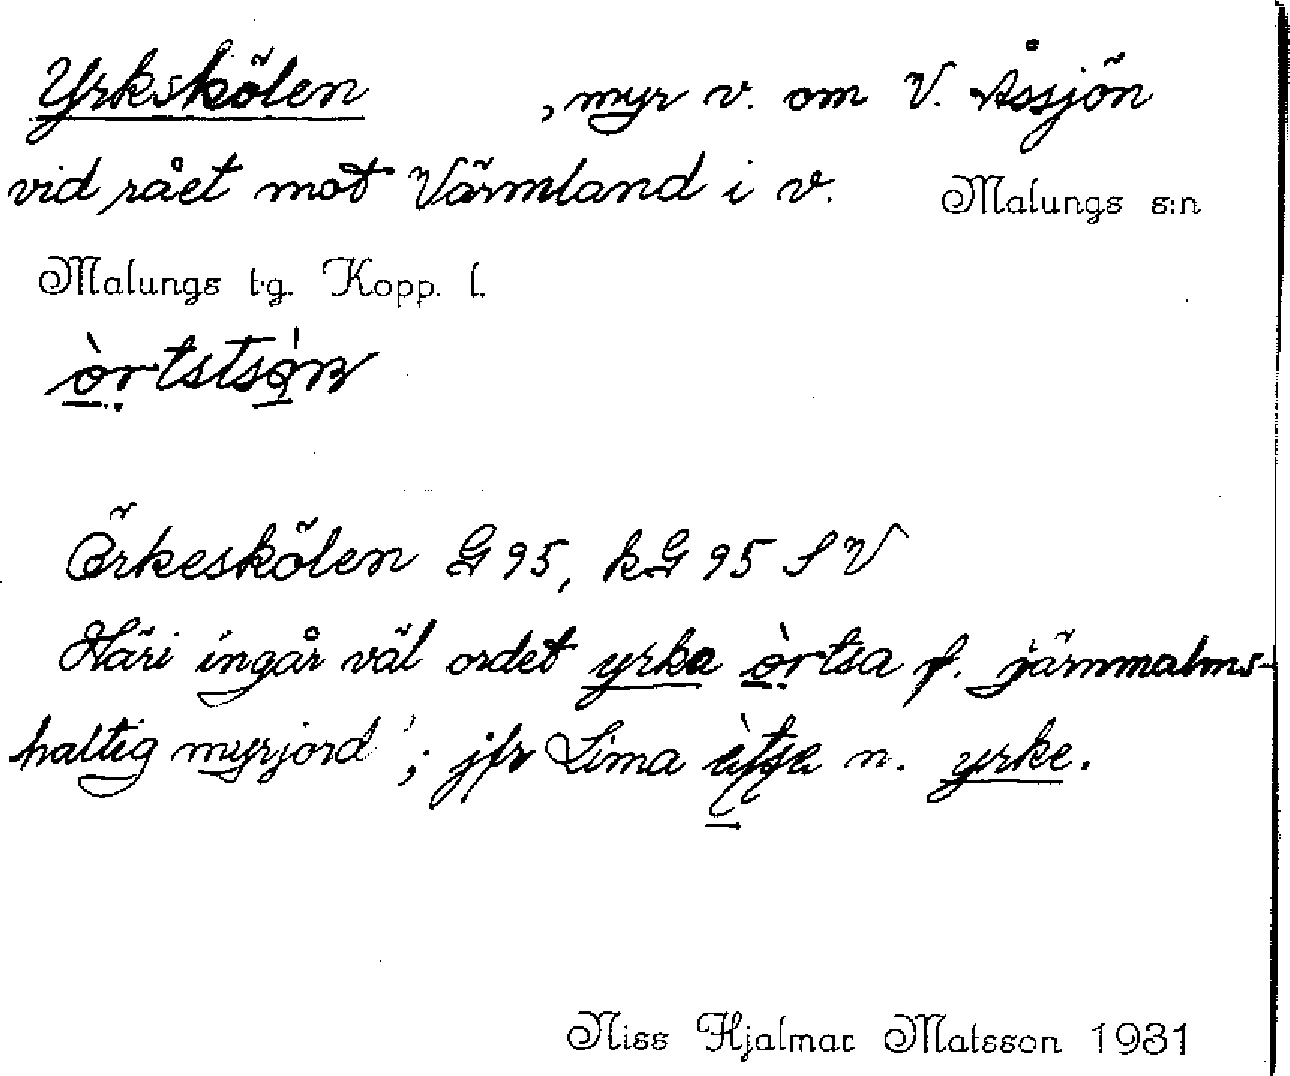 Yrkskölen , myr v. om V. Åssjön
vid rået mot Värmland i v. Malungs s:n
Malungs t.g. Kopp. l.
Örkeskölen G 95, kG 95 S V
Häri ingår väl ordet yrka f. järnmalms-
haltig myrjord'; jfr Lima n. yrke.
Niss Hjalmar Matsson 1931